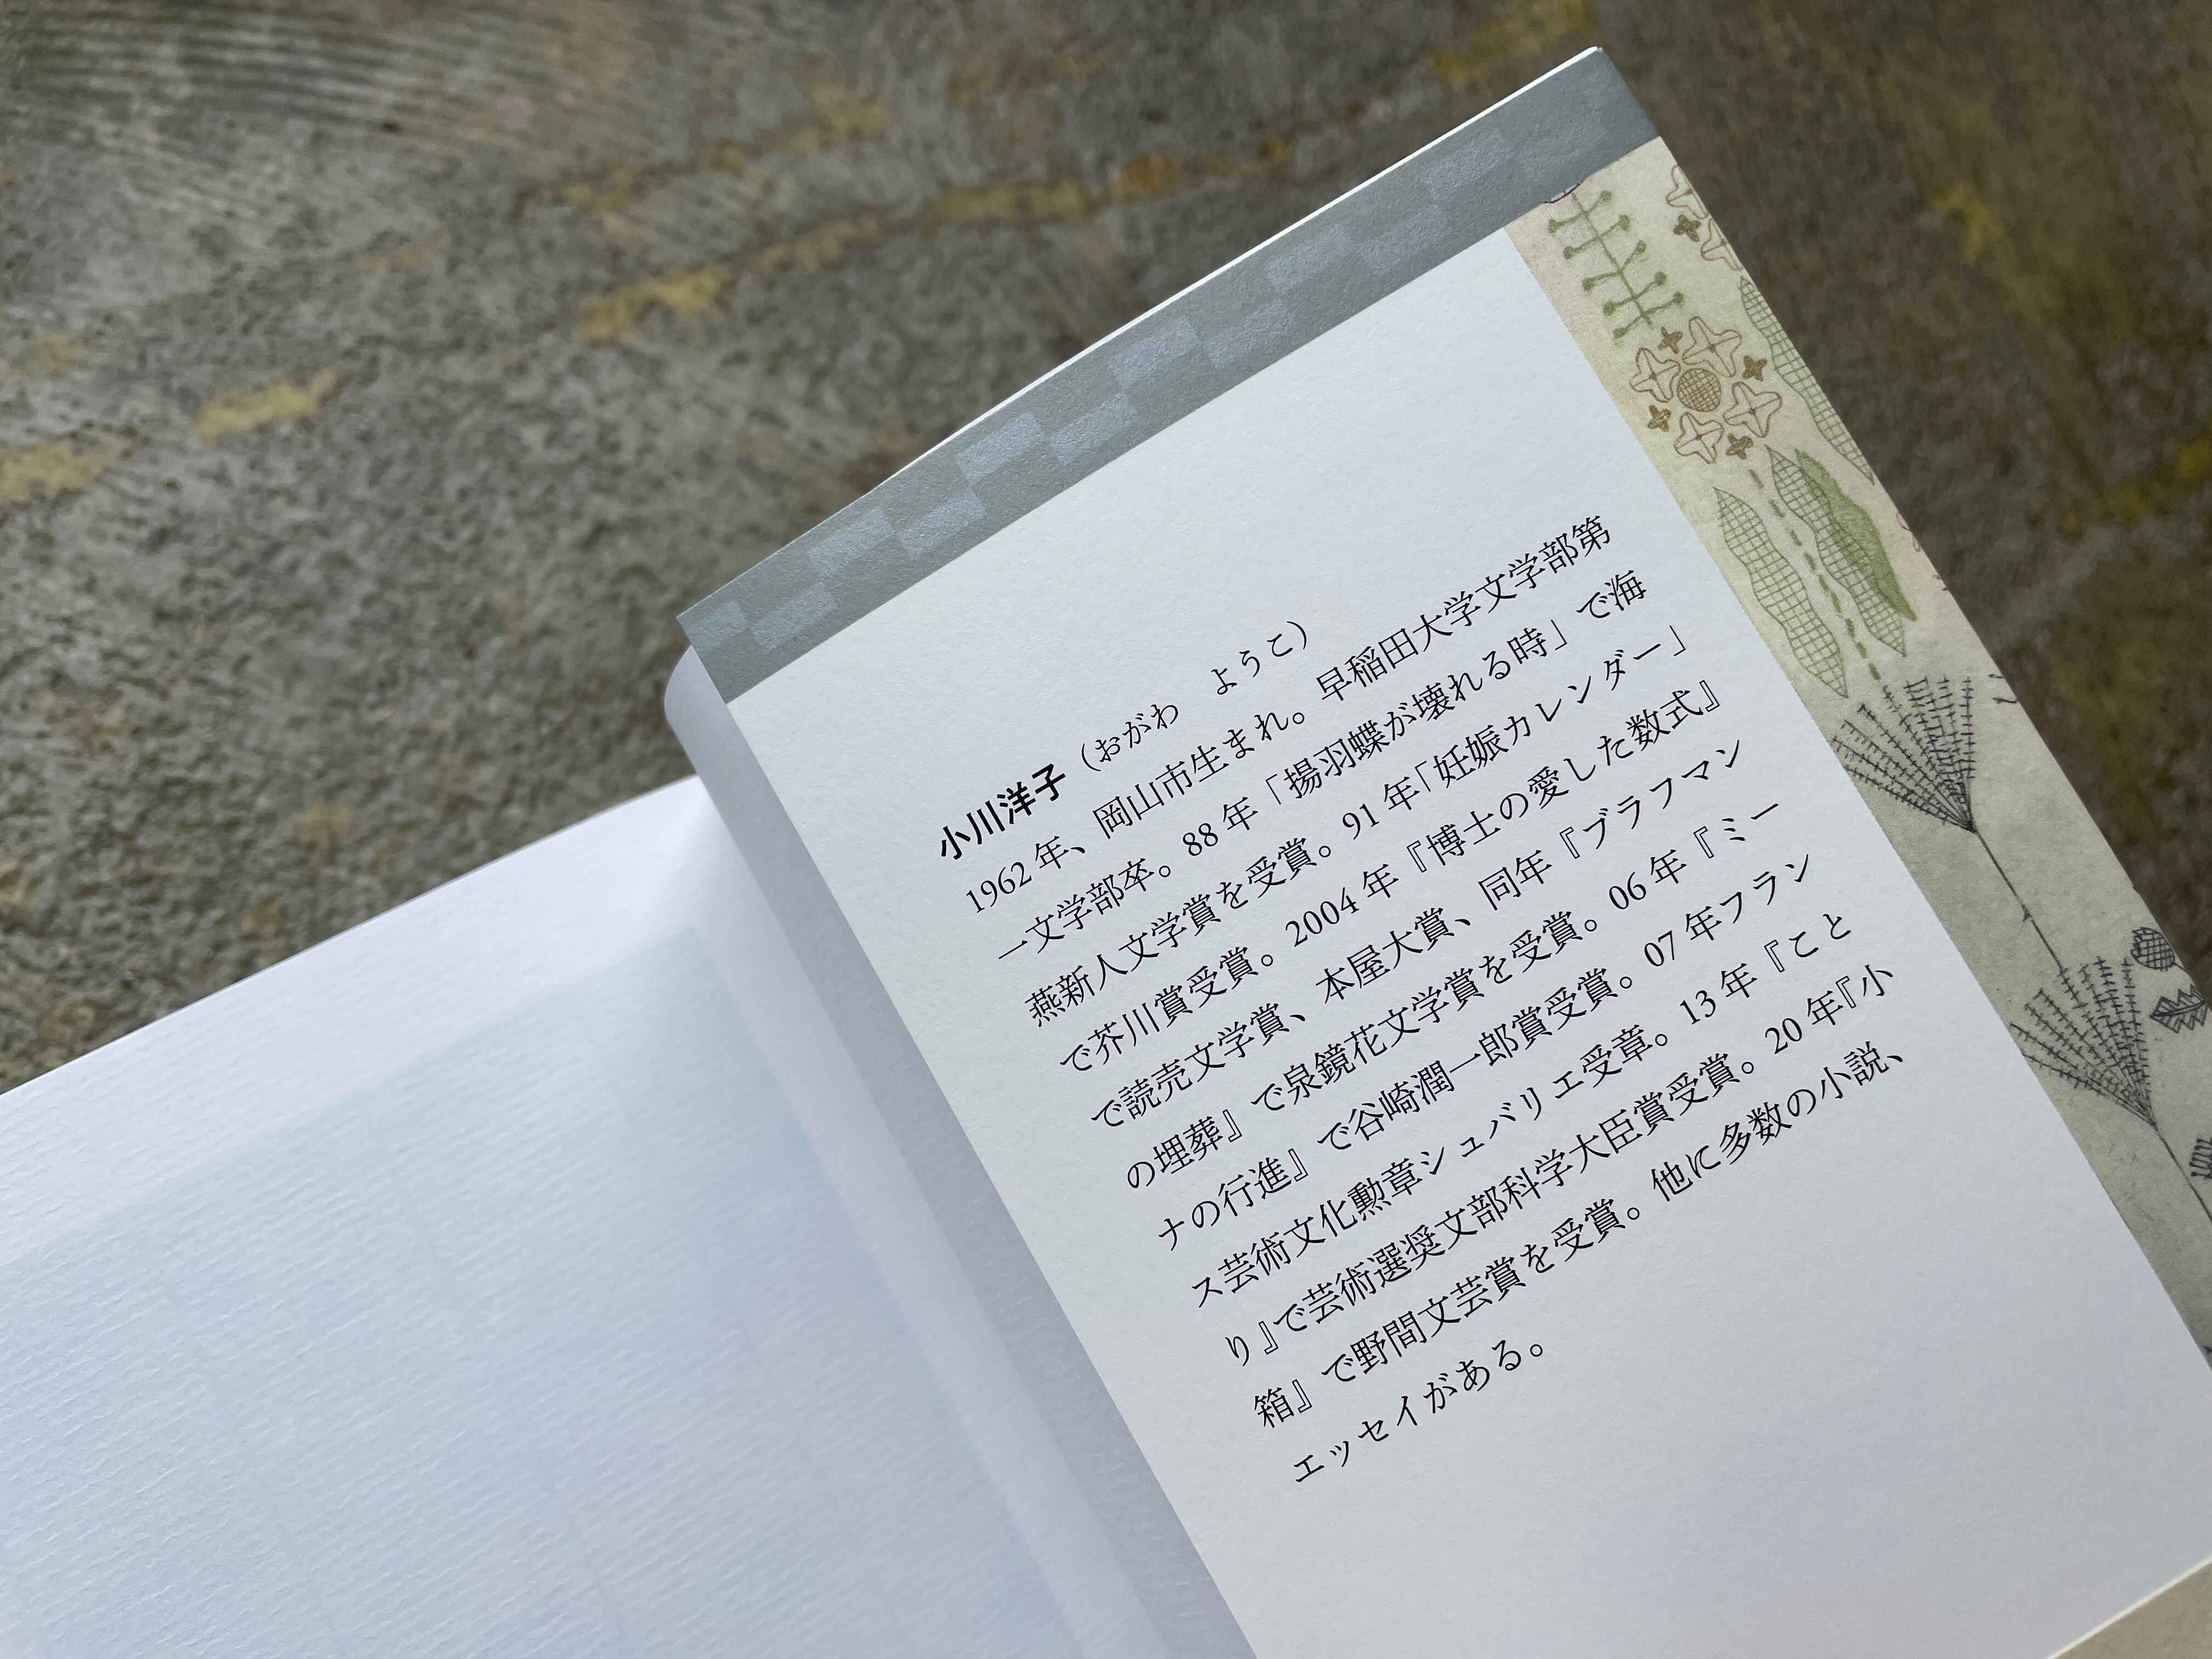 小川洋子（おがわ　ようこ）
1962年、岡山市生まれ。早稲田大学文学部第
一文学部卒。88年「揚羽蝶が壊れる時」で海
燕新人文学賞を受賞。91年「妊娠カレンダー」
で芥川賞受賞。2004年『博士の愛した数式』
で読売文学賞、本屋大賞、同年『ブラフマン
の埋葬』で泉鏡花文学賞を受賞。06年『ミー
ナの行進』で谷崎潤一郎賞受賞。07年フラン
ス芸術文化勲章シュバリエ受章。13年『こと
り』で芸術選奨文部科学大臣賞受賞。20年『小
箱』で野間文芸賞を受賞。他に多数の小説、
エッセイがある。